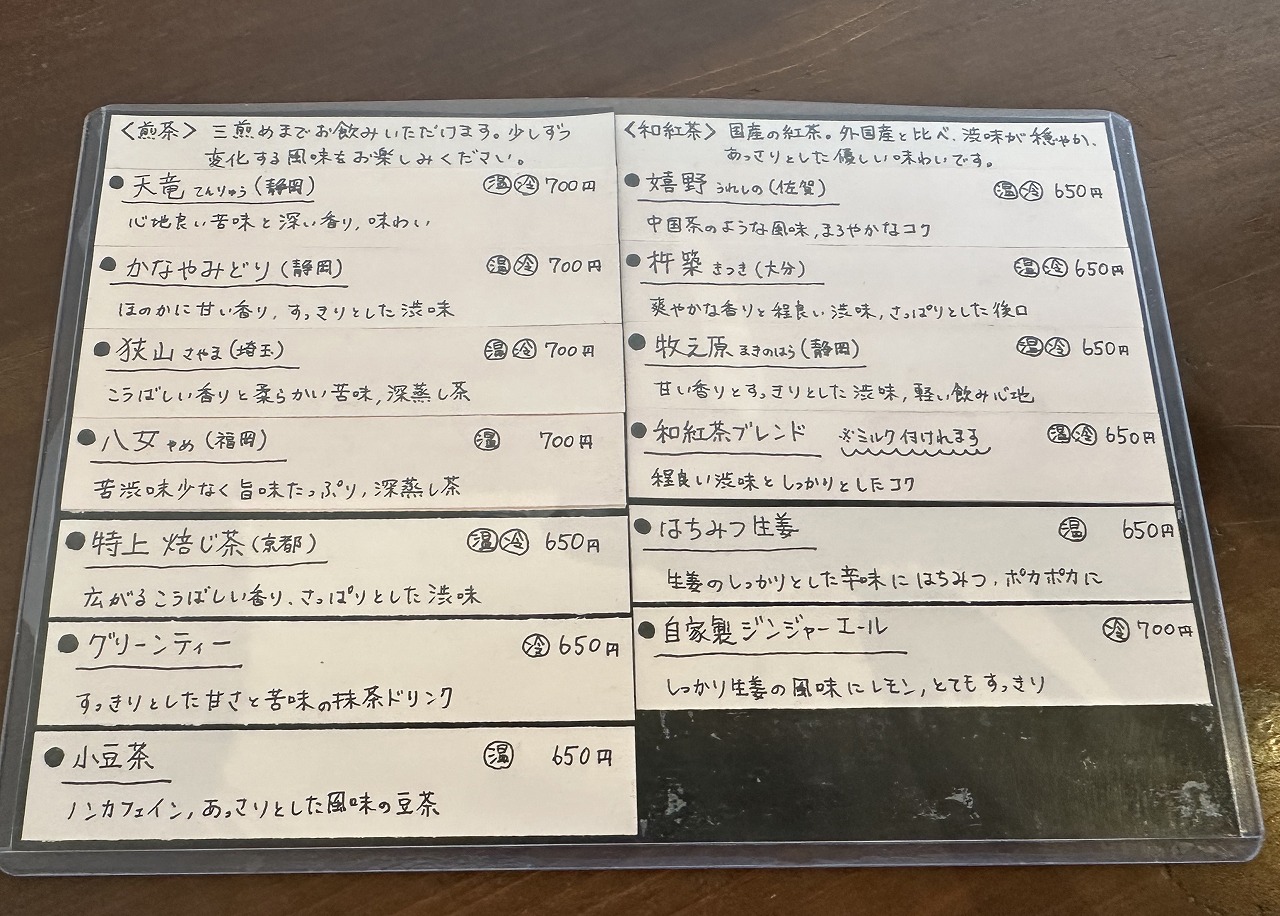 〈煎茶〉 三煎めまでお飲みいただけます。少しずつ
変化する風味をお楽しみください。
●天竜 てんりゅう(静岡) 温 冷 700円
心地良い苦味と深い香り、味わい
●かなやみどり(静岡) 温 冷 700円
ほのかに甘い香り、すっきりとした渋味
●狭山 さやま(埼玉) 温 冷 700円
こうばしい香りと柔らかい苦味、深蒸し茶
●八女 やめ(福岡) 温 700円
苦渋味少なく旨味たっぷり、深蒸し茶
●特上 焙じ茶(京都) 温 冷 650円
広がるこうばしい香り、さっぱりとした渋味
●グリーンティー 冷 650円
すっきりとした甘さと苦味の抹茶ドリンク
●小豆茶 温 650円
ノンカフェイン、あっさりとした風味の豆茶
〈和紅茶〉 国産の紅茶。外国産と比べ、渋味が穏やか、
あっさりとした優しい味わいです。
●嬉野 うれしの(佐賀) 温 冷 650円
中国茶のような風味、まろやかなコク
●杵築 きつき(大分) 温 冷 650円
爽やかな香りと程良い渋味、さっぱりとした後口
●牧之原 まきのはら(静岡) 温 冷 650円
甘い香りとすっきりとした渋味、軽い飲み心地
●和紅茶ブレンド ※ミルク付けれます 温 冷 650円
程良い渋味としっかりとしたコク
●はちみつ生姜 温 650円
生姜のしっかりとした辛味にはちみつ、ポカポカに
●自家製ジンジャーエール 冷 700円
しっかり生姜の風味にレモン、とてもすっきり